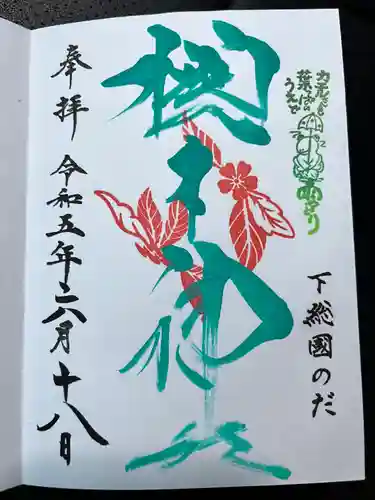 カエルさん
葉っぱの
うえで
雨やどり
下総國のだ
櫻木神社
奉拝 令和五年六月十八日